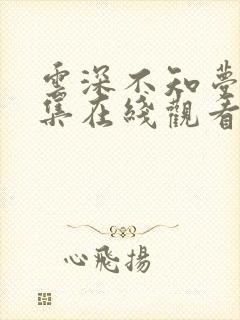 雲深不知夢
集在綫觀看
心飛揚